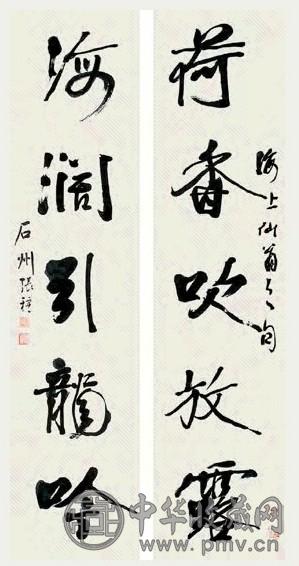 荷香吹放露
海上仙翁之句
海濶引龍吟
石州張穆
中华收藏网
www.pmv.cn